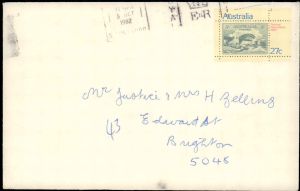 1982
Australia
27c
Mr Justice & Mrs H Zelling
43 Edward St
Brighton
5048